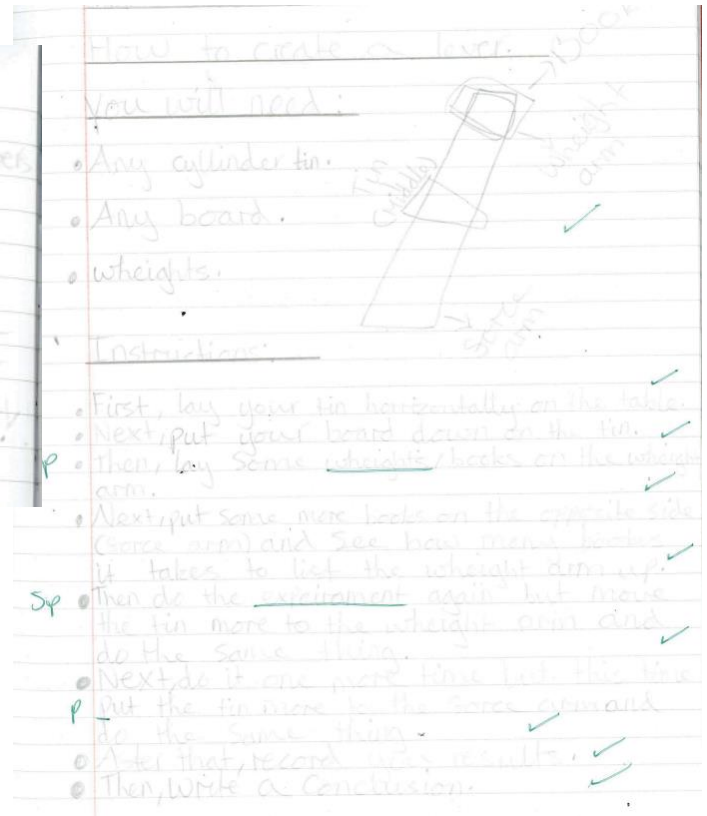 How to create a lever.
→ Book
You will need:
wheight
arm
ers
• Any cyllinder tin.
Tin
(middle)
• Any board.
• wheights.
→ sorce
arm
Instructions:
• First, lay your tin horrizontally on the table.
• Next, put your board down on the tin.
p • Then, lay some wheights/books on the wheight
arm.
• Next, put some more books on the opposite side
(sorce arm) and see how many books
it takes to list the wheight arm up.
Sp • Then do the again but move
the tin more to the wheight arm and
do the same thing.
• Next, do it one more time but this time
p put the tin more to the sorce arm and
do the same thing.
• Aster that, record results.
• Then, write a Conclusion.